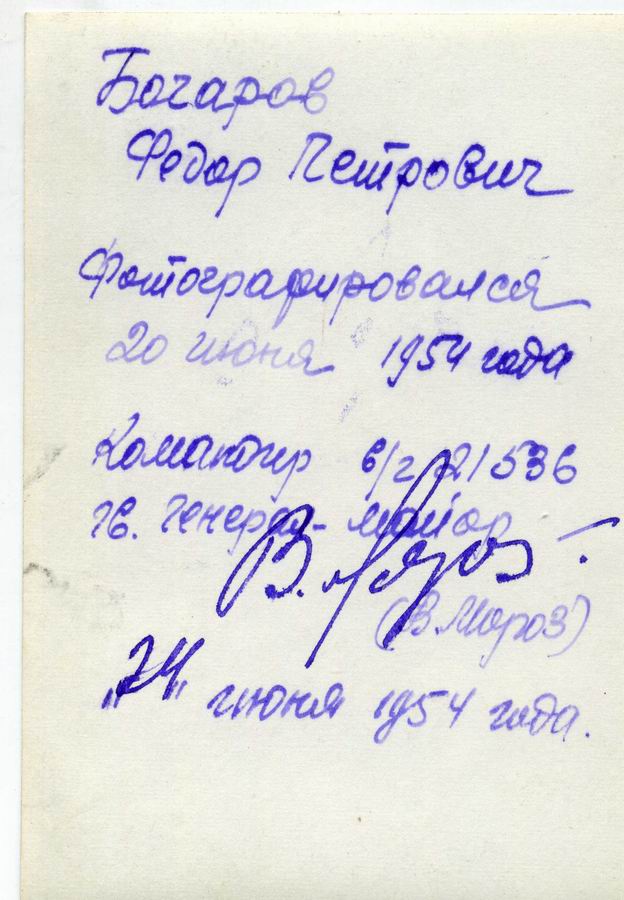 Бочаров
Федор Петрович
Фотографировался
20 июня 1954 года
Командир в/ч 21536
Гв. Генерал-майор
В. Мороз
(В Мороз)
„24" июня 1954 года.